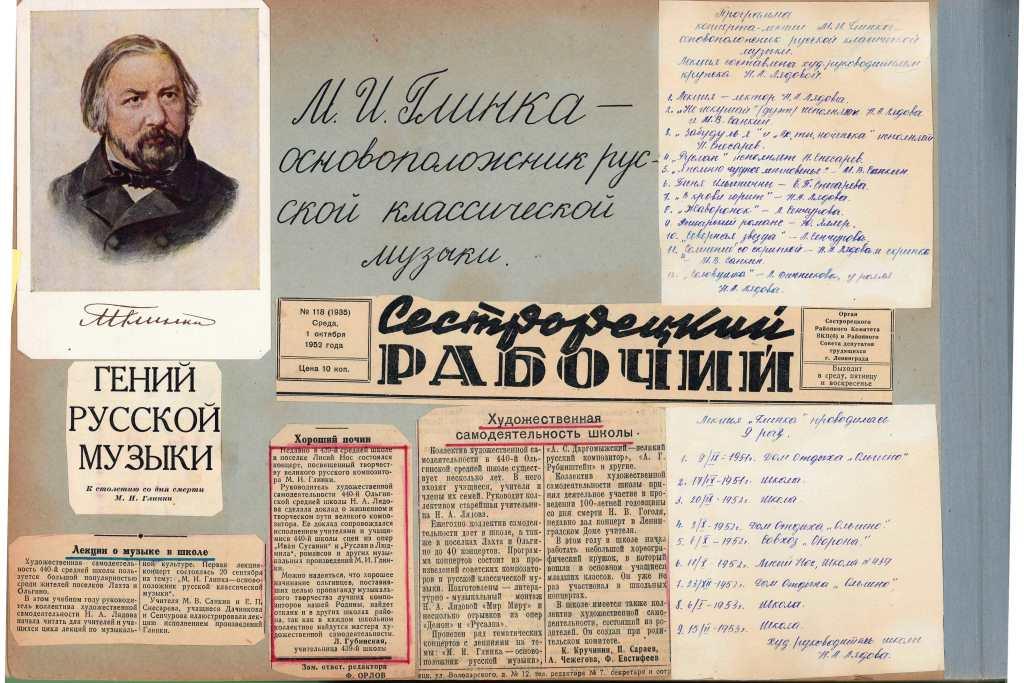 М. И. Глинка —
основоположник рус-
ской классической
музыки.
МГлинка
ГЕНИЙ
РУССКОЙ
МУЗЫКИ
К столетию со дня смерти
М. И. Глинки
Программа
концерта-лекции М. И. Глинка —
основоположник русской классической
музыки.
Лекция составлена худ. руководителем
кружка Н. А. Лядовой.
1. Лекция — лектор Н. А. Лядова.
2. „Не искушай" (дуэт) исполняют Н. А. Лядова
и М. В. Санкин.
3. „Забуду ль я" и „Ах, ты, ноченька" исполняет
Н. Снесарев.
4. „Руслан" исполняет Н. Снесарев.
5. „Я помню чудное мгновенье" — М. В. Санкин
6. Песня Ильинишны — Е. П. Снесарева.
7. „В крови горит" — Н. А. Лядова.
8. „Жаворонок" — Л. Сенчурова.
9. романс — Ю.
10. „Северная звезда" — Л. Сенчурова.
11. „Сомнение" со скрипкой — Н. А. Лядова и скрипка
— М. В. Санкин.
12. — Л. Дачникова, у рояля
Н. А. Лядова.
№ 118 (1935)
Среда,
1 октября
1952 года
Цена 10 коп.
Сестрорецкий
РАБОЧИЙ
Орган
Сестрорецкого
Районного Комитета
ВКП(б) и Районного
Совета депутатов
трудящихся
г. Ленинграда
Выходит
в среду, пятницу
и воскресенье
Лекции о музыке в школе
Художественная самодеятельность 440-й средней школы пользуется большой популярностью среди жителей поселков Лахта и Ольгино.
В этом учебном году руководитель коллектива художественной самодеятельности Н. А. Лядова начала читать для учителей и учащихся цикл лекций по музыкаль-
ной культуре. Первая лекция-концерт состоялась 20 сентября на тему: „М. И. Глинка—основоположник русской классической музыки".
Учителя М. В. Санкин и Е. П. Снесарева, учащиеся Дачникова и Сенчурова иллюстрировали лекцию исполнением произведений Глинки.
Хороший почин
Недавно в 439-й средней школе
в поселке Лисий Нос состоялся
концерт, посвященный творчест-
ву великого русского композито-
ра М. И. Глинки.
Руководитель художественной
самодеятельности 440-й Ольгин-
ской средней школы Н. А. Лядо-
ва сделала доклад о жизненном и
творческом пути великого компо-
зитора. Ее доклад сопровождался
исполнением учителями и учащи-
мися 440-й школы сцен из опер
„Иван Сусанин" и „Руслан и Люд-
мила", романсов и других музы-
кальных произведений М. И. Глин-
ки.
Можно надеяться, что хорошее
начинание ольгинцев, поставив-
ших целью пропаганду музыкаль-
ного творчества лучших компози-
торов нашей Родины, найдет
отклик и в других школах райо-
на, так как в каждом школьном
коллективе найдутся мастера ху-
дожественной самодеятельности.
Л. Губинская,
учительница 439-й школы
Зам. ответ. редактора
Ф. ОРЛОВ
Художественная
самодеятельность школы
Коллектив художественной са-
модеятельности в 440-й Оль-
гинской средней школе сущест-
вует несколько лет. В него
входят учащиеся, учителя и
члены их семей. Руководит кол-
лективом старейшая учительни-
ца Н. А. Лядова.
Ежегодно коллектив самодея-
тельности дает в школе, а так-
же в поселках Лахта и Ольги-
но до 40 концертов. Програм-
ма концертов состоит из про-
изведений советских композито-
ров и русской классической му-
зыки. Подготовлены — литера-
турно - музыкальный монтаж
Н. А. Лядовой «Мир Миру» и
несколько отрывков из опер
«Демон» и «Русалка».
Проведен ряд тематических
концертов с лекциями на те-
мы: «М. И. Глинка — осново-
положник русской музыки»,
«А. С. Даргомыжский—великий
русский композитор», «А. Г.
Рубинштейн» и другие.
Коллектив художественной
самодеятельности школы при-
нял деятельное участие в прове-
дении 100-летней годовщины
со дня смерти Н. В. Гоголя,
недавно дал концерт в Ленин-
градском Доме учителя.
В этом году в школе начал
работать небольшой хореогра-
фический кружок, в который
вошли в основном учащиеся
младших классов. Он уже не
раз участвовал в школьных
концертах.
В школе имеется также кол-
лектив художественной само-
деятельности, состоящий из ро-
дителей. Он создан при роди-
тельском комитете.
К. Кручинин, П. Сараев,
А. Чежегова, Ф. Евстифеев
ецк, ул. Володарского, д. № 12, тел. редактора № 7, секретаря и сот
Лекция „Глинка" проводилась
9 раз.
1. 9/IX — 1951г. Дом Отдыха „Ольгино"
2. школа.
3. школа
4. Дом Отдыха „Ольгино"
5. Совхоз
6. Лисий Нос, Школа № 439
7. Дом Отдыха „Ольгино"
8. 1953г. школа.
9. 1953г. школа.
Худ. руководитель школы
Н. А. Лядова.